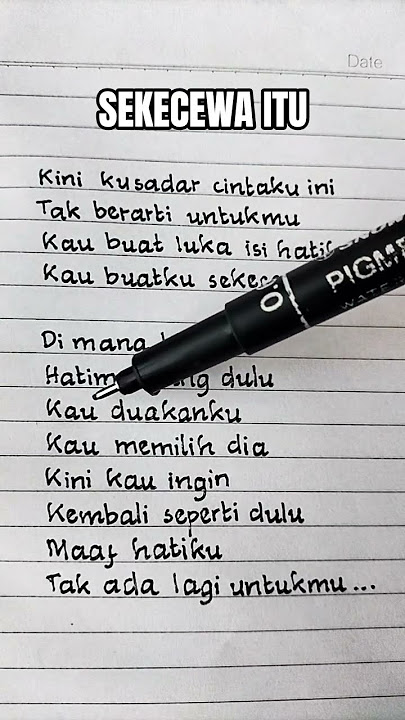 Date
SEKECEWA ITU
Kini kusadar cintaku ini
Tak berarti untukmu
Kau buat luka isi
Kau buatku
Di mana
dulu
Kau duakanku
Kau memilih dia
Kini kau ingin
Kembali seperti dulu
Maaf hatiku
Tak ada lagi untukmu...
0.